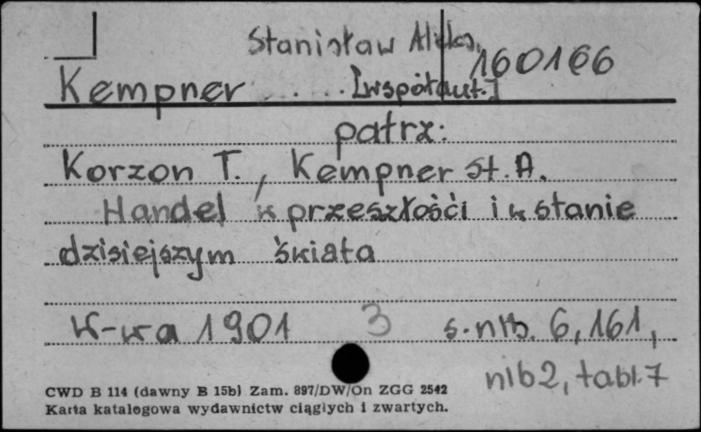 Stanisław Aleks. 160166
Kempner ..... [współaut.]
patrz:
Korzon T., Kempner St. A.
Handel w przeszłości i w stanie
dzisiejszym świata
W-wa 1901 3 s. nlb. 6, 161,
nlb 2, tabl. 7
CWD B 114 (dawny B 15b) Zam. 897/DW/On ZGG 2542
Karta katalogowa wydawnictw ciągłych i zwartych.